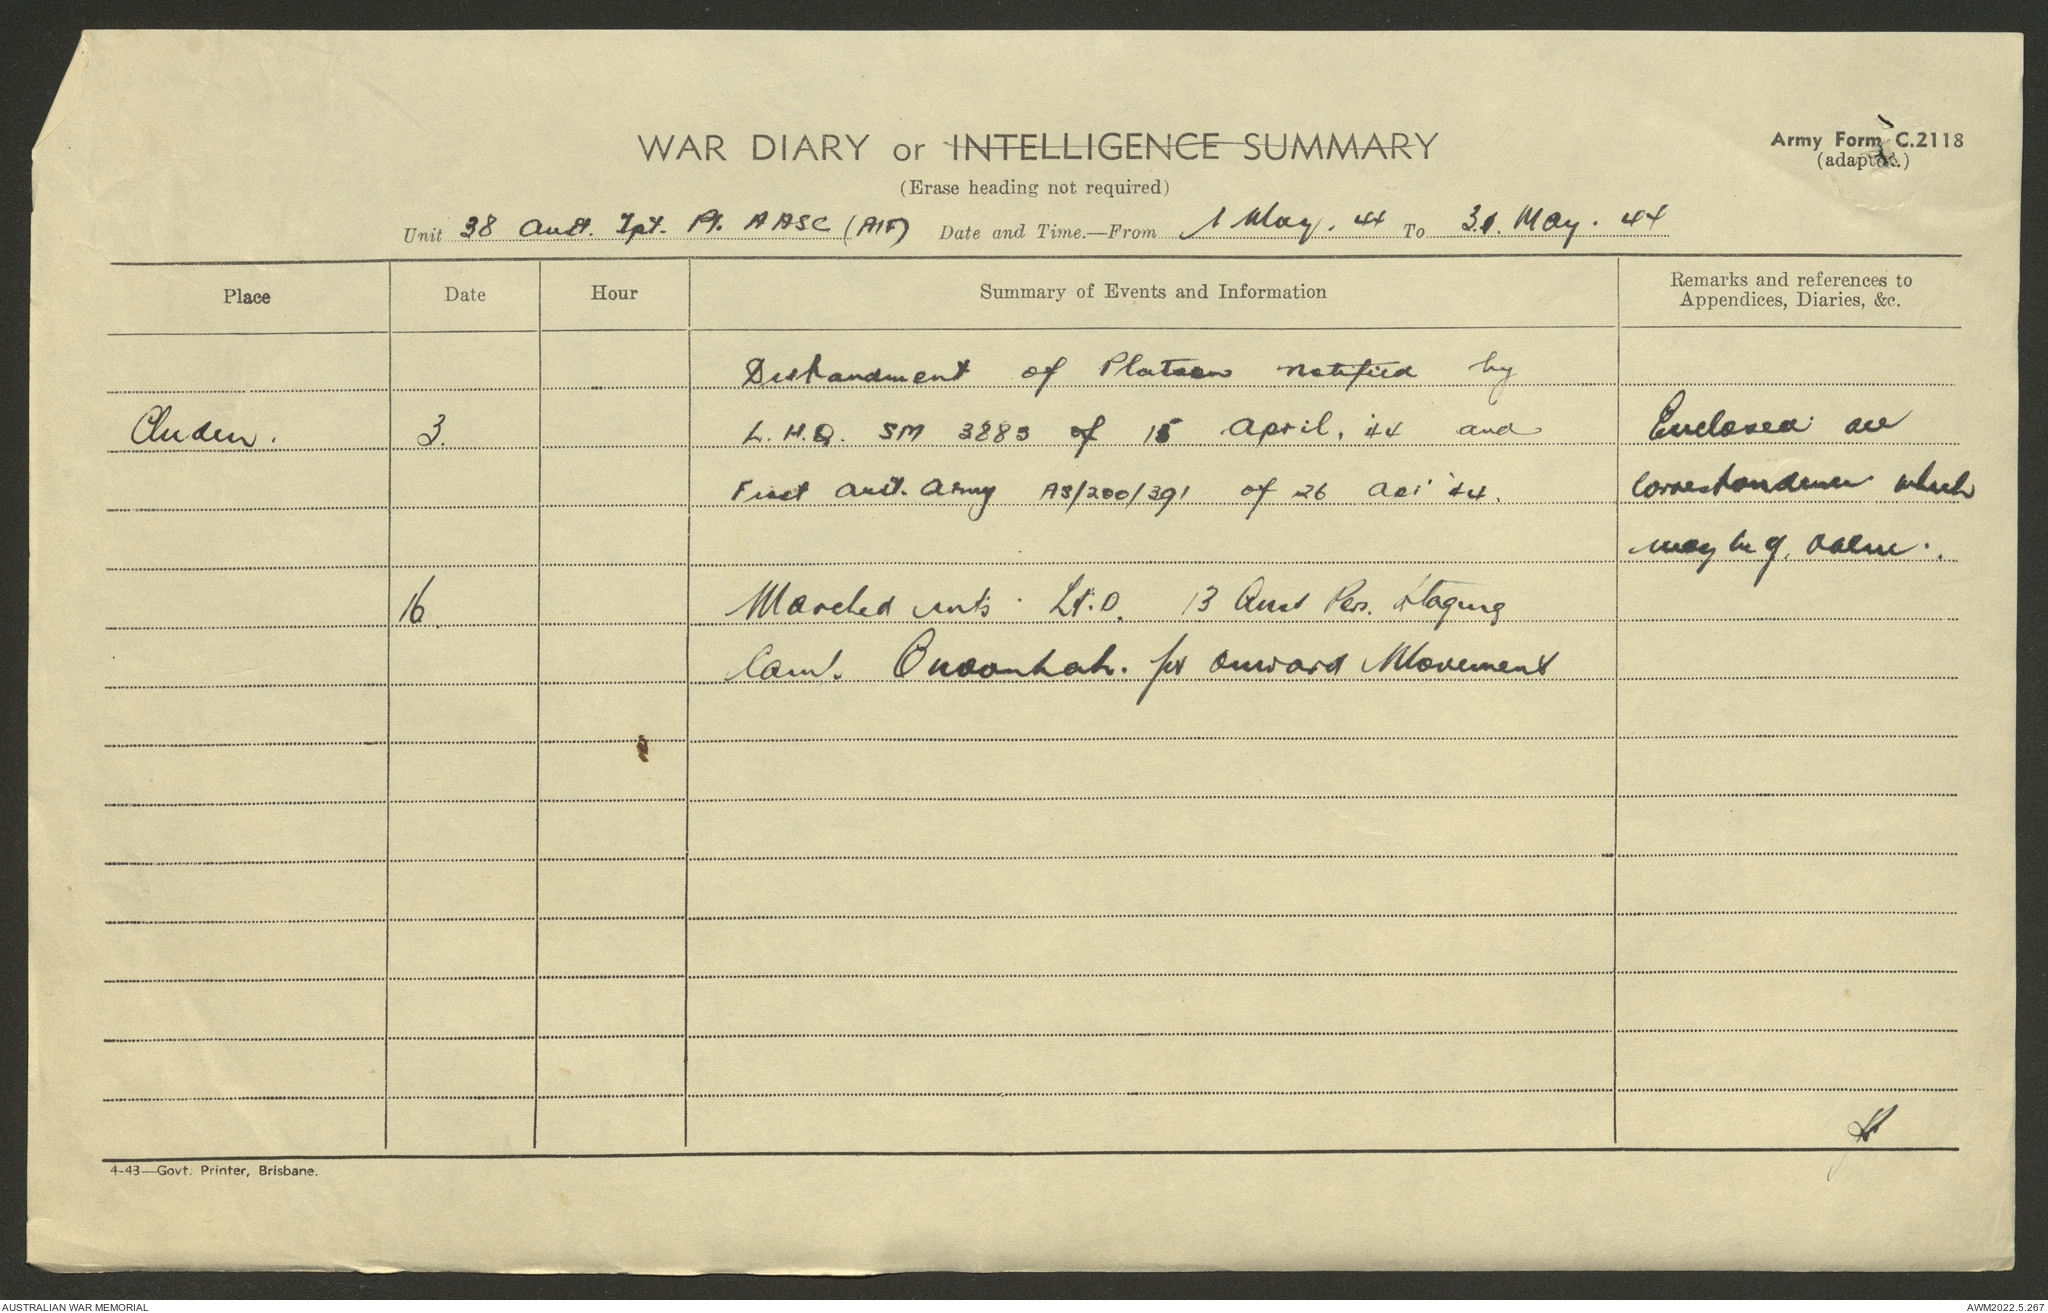 WAR DIARY or INTELLIGENCE SUMMARY
Army Form C.2118
(adapted.)
(Erase heading not required)
Unit 38 Aust. Tpt. Pl. AASC (AIF) Date and Time.—From 1 May. 44 To 31. May. 44
Place Date Hour Summary of Events and Information Remarks and references to
Appendices, Diaries, &c.
Disbandment of Platoon notified by
Cluden. 3. L.H.Q. SM 3883 of 15 April, 44 and Enclosed are
First Aust. Army AS/200/391 of 26 Apr 44. correspondence which
may be of value.
16. Marched out to 13 Aust Pers. Staging
Camp. Oonoonbah. for onward Movement
4-43—Govt. Printer, Brisbane.
AUSTRALIAN WAR MEMORIAL
AWM2022.5.267